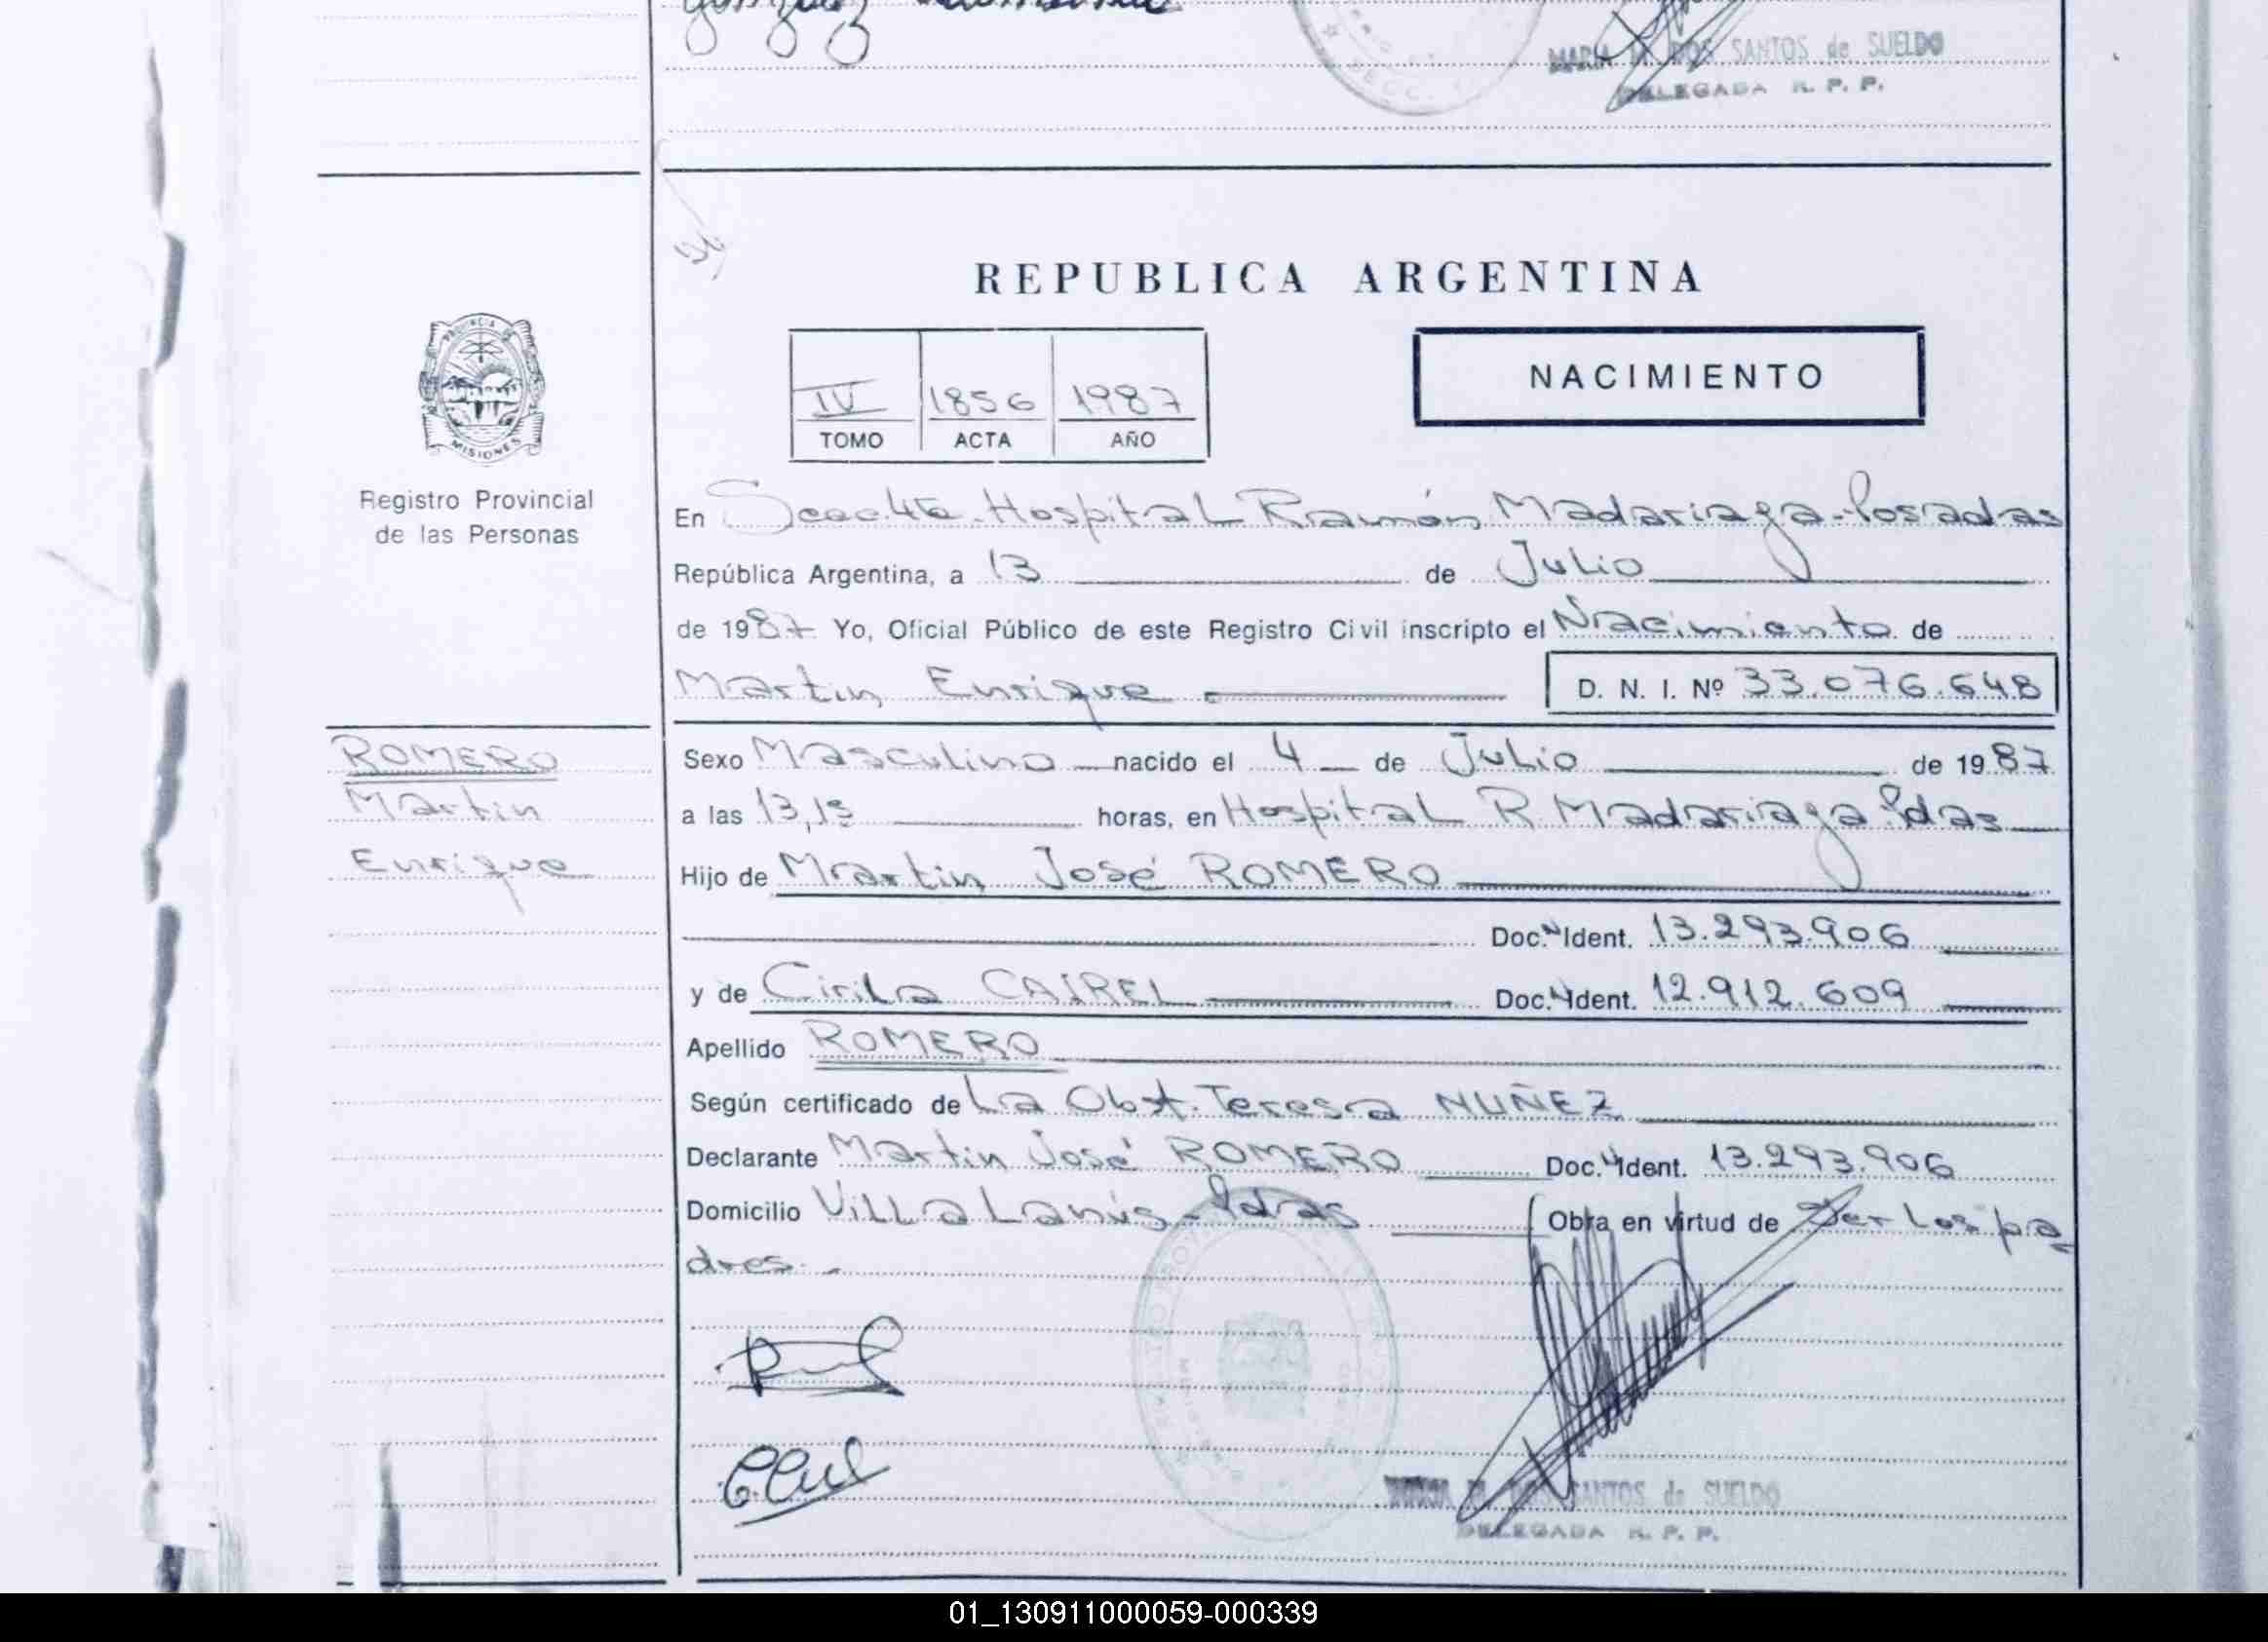 MARIA M. DOS SANTOS de SUELDO
DELEGADA R. P. P.
REPUBLICA ARGENTINA
PROVINCIA DE
MISIONES
Registro Provincial
de las Personas
IV 1856 1987
TOMO ACTA AÑO
NACIMIENTO
En Secc 4ta. Hospital Ramón Madariaga-Posadas
República Argentina, a 13 de Julio
de 1987 Yo, Oficial Público de este Registro Civil inscripto el Nacimiento de
Martin Enrique D. N. I. Nº 33.076.648
ROMERO
Martin
Enrique
Sexo Masculino nacido el 4 de Julio de 1987
a las 13,15 horas, en Hospital R Madariaga Pdas
Hijo de Martin José ROMERO
Doc. Ident. 13.293.906
y de Cirila CAIREL Doc. Ident. 12.912.609
Apellido ROMERO
Según certificado de La Obst. Teresa NUÑEZ
Declarante Martin José ROMERO Doc. Ident. 13.293.906
Domicilio Villa Lanús-Pdas Obra en virtud de Ser Los pa
dres.-
DOS SANTOS de SUELDO
DELEGADA R. P. P.
01_130911000059-000339